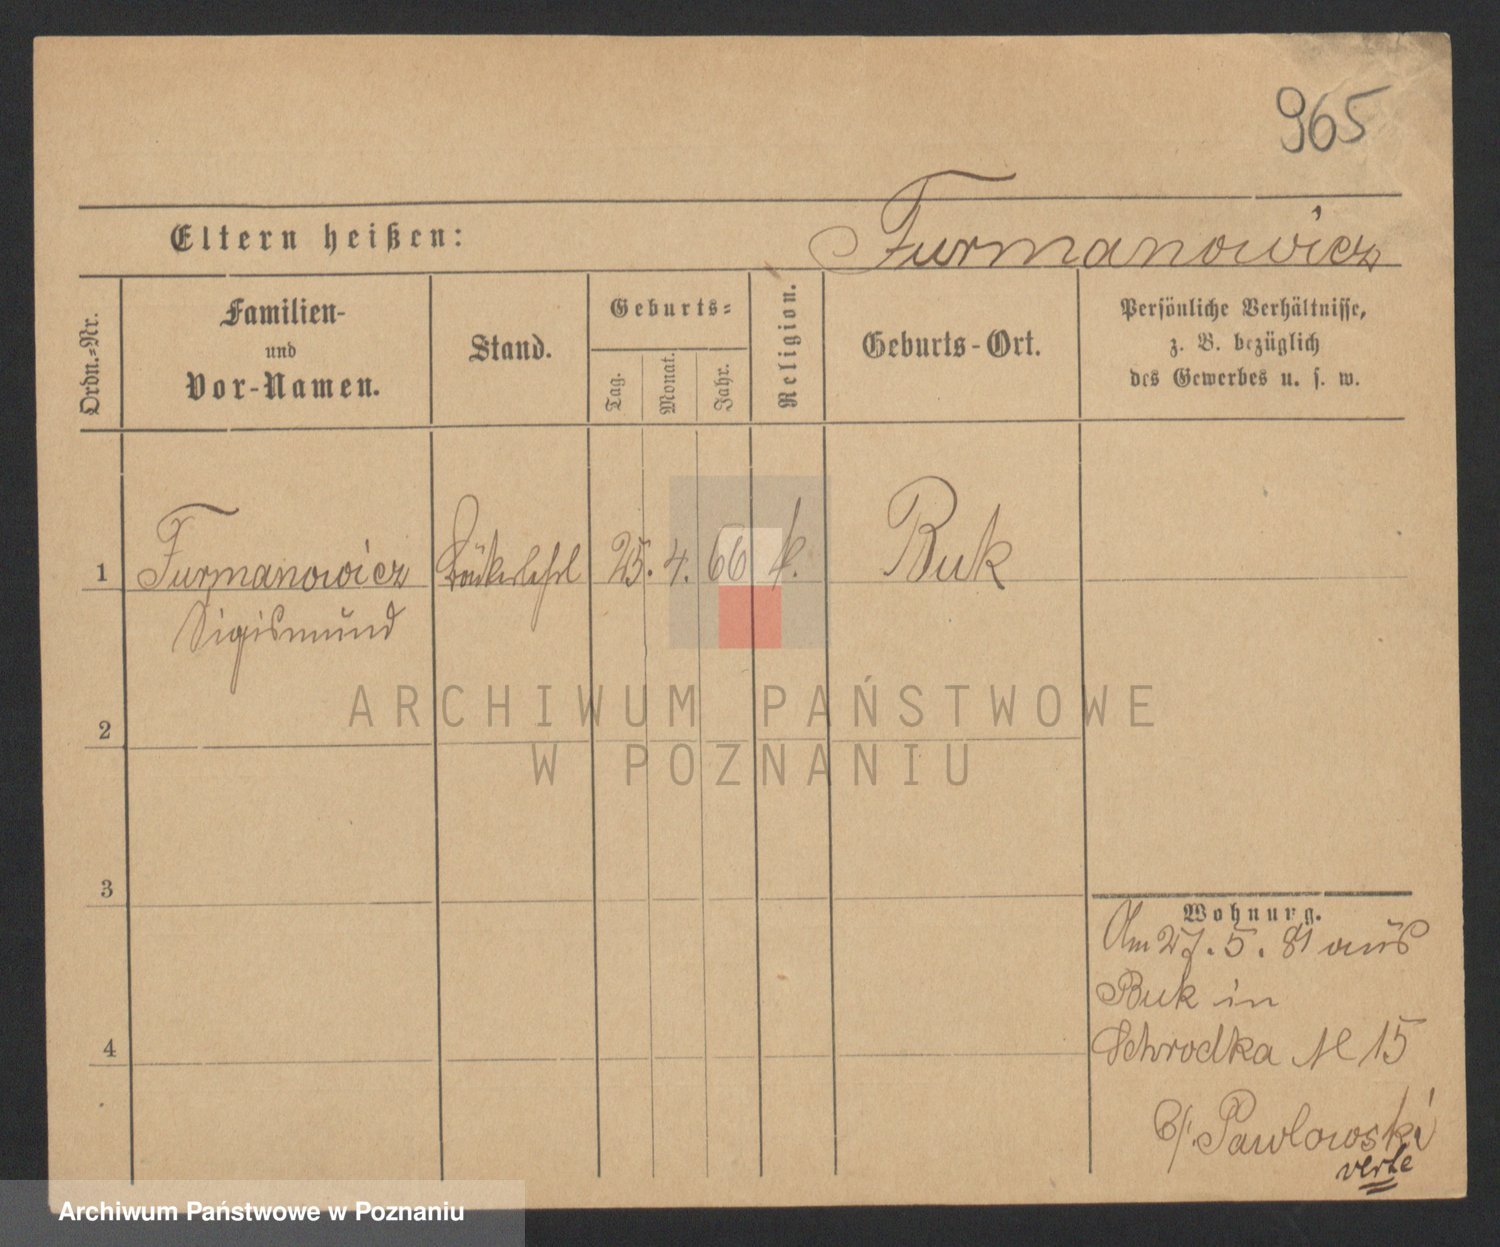 965
Eltern heißen:
Furmanowicz
Ordn.-Nr.
Familien-
und
Vor-Namen.
Stand.
Geburts-
Tag.
Monat.
Jahr.
Religion.
Geburts-Ort.
Persönliche Verhältnisse,
z. B. bezüglich
des Gewerbes u. s. w.
1 Furmanowicz 25. 4. 66 k. Buk
Sigismund
2
3
4
Wohnung.
Am 27. 5. 81 aus
Buk in
Schrodka № 15
b/. Pawlowski
verte
ARCHIWUM PAŃSTWOWE
W POZNANIU
Archiwum Państwowe w Poznaniu